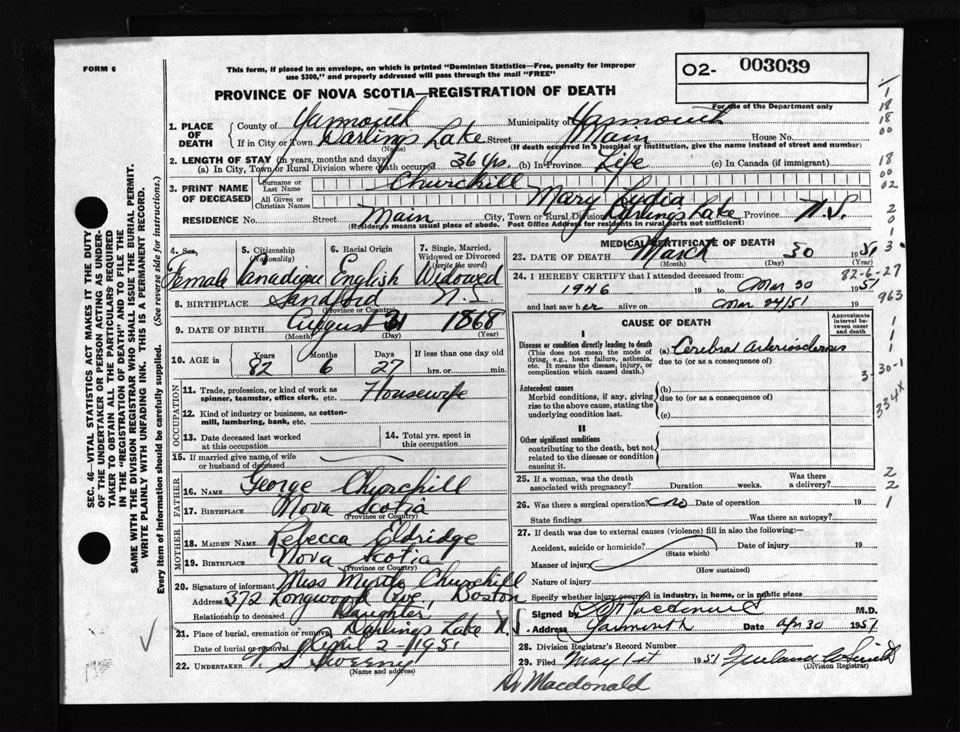 FORM 6
This form, if placed in an envelope, on which is printed "Dominion Statistics—Free, penalty for improper
use $300," and properly addressed will pass through the mail "FREE"
02- 003039
For use of the Department only
PROVINCE OF NOVA SCOTIA—REGISTRATION OF DEATH
1. PLACE OF DEATH { County of Yarmouth Municipality of Yarmouth
If in City or Town Darlings Lake Street Main House No.
(Name) (If death occurred in a hospital or institution, give name instead of street and number)
2. LENGTH OF STAY (in years, months and days)
(a) In City, Town or Rural Division where death occurred 36 yrs. (b) In Province Life (c) In Canada (if immigrant)
3. PRINT NAME OF DECEASED { Surname or Last Name Churchill
All Given or Christian Names Mary Lydia
RESIDENCE No. Street Main City, Town or Rural Division Darlings Lake Province N.S.
(Residence means usual place of abode. Post Office Address for residents in rural parts not sufficient)
4. Sex Female
5. Citizenship (Nationality) Canadian
6. Racial Origin English
7. Single, Married, Widowed or Divorced (write the word) Widowed
8. BIRTHPLACE Sandford N.S.
(Province or Country)
9. DATE OF BIRTH August 31 1868
(Month) (Day) (Year)
10. AGE in Years 82 Months 6 Days 27 If less than one day old hrs. or min.
OCCUPATION
11. Trade, profession, or kind of work as spinner, teamster, office clerk, etc. Housewife
12. Kind of industry or business, as cotton-mill, lumbering, bank, etc.
13. Date deceased last worked at this occupation
14. Total yrs. spent in this occupation
15. If married give name of wife or husband of deceased
FATHER
16. NAME George Churchill
17. BIRTHPLACE Nova Scotia
(Province or Country)
MOTHER
18. MAIDEN NAME Rebecca Eldridge
19. BIRTHPLACE Nova Scotia
(Province or Country)
20. Signature of informant Miss Myrtle Churchill
Address 372 Longwood Ave., Boston
Relationship to deceased Daughter
21. Place of burial, cremation or removal Darlings Lake N.S.
Date of burial or removal April 2 - 1951
22. UNDERTAKER S Sweeny
(Name and address)
MEDICAL CERTIFICATE OF DEATH
23. DATE OF DEATH March 30 1951
(Month) (Day) (Year)
82-6-27
24. I HEREBY CERTIFY that I attended deceased from:
1946 19 to Mar 30 1951
and last saw her alive on Mar 24/51 19
CAUSE OF DEATH
Approximate interval between onset and death
I
Disease or condition directly leading to death
(This does not mean the mode of dying, e.g., heart failure, asthenia, etc. It means the disease, injury, or complication which caused death.)
(a) Cerebral Arteriosclerosis
due to (or as a consequence of)
Antecedent causes
Morbid conditions, if any, giving rise to the above cause, stating the underlying condition last.
(b)
due to (or as a consequence of)
(c)
II
Other significant conditions
contributing to the death, but not related to the disease or condition causing it.
25. If a woman, was the death associated with pregnancy? Duration weeks. Was there a delivery?
26. Was there a surgical operation? no Date of operation 19
State findings Was there an autopsy?
27. If death was due to external causes (violence) fill in also the following:
Accident, suicide or homicide? Date of injury 19
(State which)
Manner of injury
(How sustained)
Nature of injury
Specify whether injury occurred in industry, in home, or in public place
Signed by M.D.
Address Yarmouth Date Apr 30 1951
28. Division Registrar's Record Number
29. Filed May 1st 1951
(Division Registrar)
Dr Macdonald
SEC. 46—VITAL STATISTICS ACT MAKES IT THE DUTY
OF THE UNDERTAKER OR PERSON ACTING AS UNDER-
TAKER TO OBTAIN ALL THE PARTICULARS REQUIRED
IN THE "REGISTRATION OF DEATH" AND TO FILE THE
SAME WITH THE DIVISION REGISTRAR WHO SHALL ISSUE THE BURIAL PERMIT.
WRITE PLAINLY WITH UNFADING INK. THIS IS A PERMANENT RECORD.
Every item of information should be carefully supplied. (See reverse side for instructions.)
1
18
18
00
18
00
02
2
0
1
3
963
1
1
1
3-30-1
334X
2
2
1